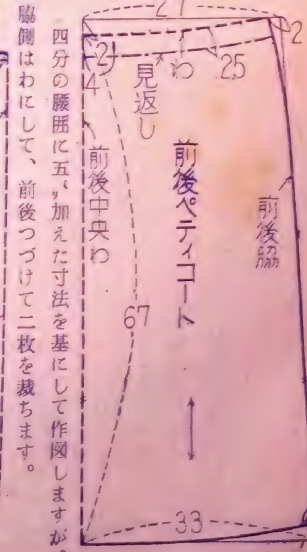 27
2
2
4
わ
2.5
見返し
前後中央わ
前後ペティコート
前後脇
67
33
四分の腰囲に五㌢加えた寸法を基にして作図しますが、
脇側はわにして、前後つづけて二枚を裁ちます。